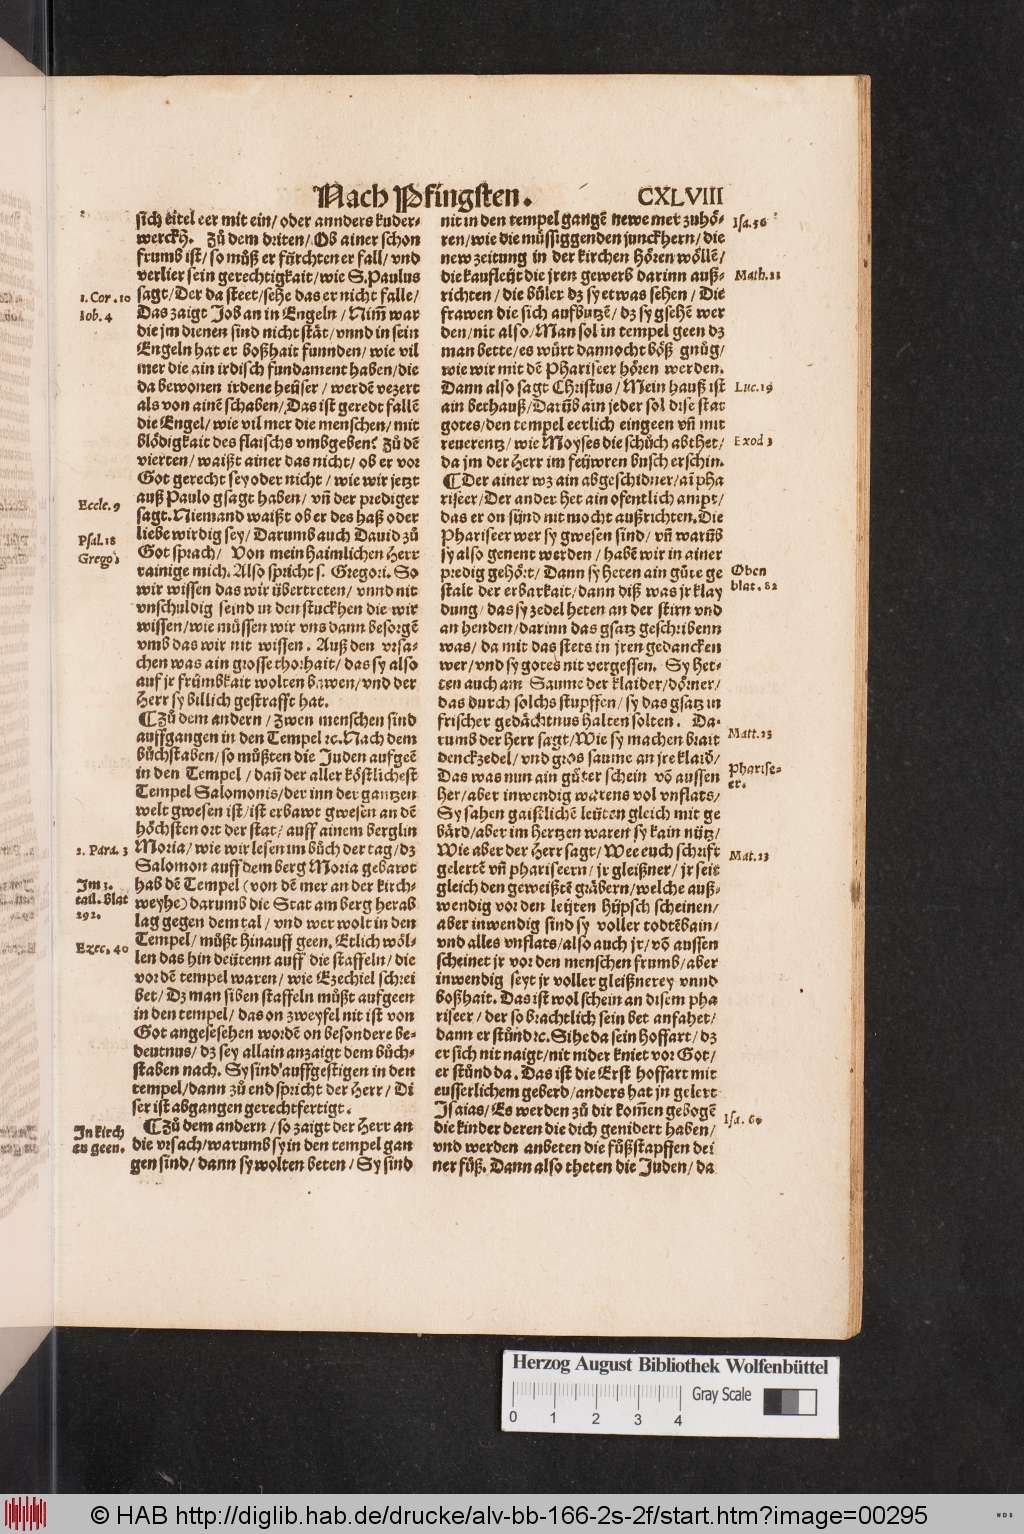 Nach Pfingsten.
CXLVIII
sich eitel eer mit ein/ oder annders kuder-
werckhs. Zů dem driten/ Ob ainer schon
frumb ist/ so můß er fürchten er fall/ vnd
verlier sein gerechtigkait/ wie S. Paulus
sagt/ Der da steet/ sehe das er nicht falle/
Das zaigt Job an in Engeln/ Nim̃ war
die jm dienen sind nicht stät/ vnnd in sein
Engeln hat er boßhait funnden/ wie vil
mer die ain irdisch fundament haben/ die
da bewonen irdene heüser/ werdẽ vezert
als von ainẽ schaben/ Das ist geredt fallẽ
die Engel/ wie vil mer die menschen/ mit
blödigkait des flaischs vmbgeben? Zů dẽ
vierten/ waißt ainer das nicht/ ob er vor
Got gerecht sey oder nicht/ wie wir jetzt
auß Paulo gsagt haben/ vñ der prediger
sagt. Niemand waißt ob er des haß oder
liebe wirdig sey/ Darumb auch Dauid zů
Got sprach/ Von mein haimlichen Herr
rainige mich. Also spricht s. Gregori. So
wir wissen das wir übertreten/ vnnd nit
vnschuldig seind in den stuckhen die wir
wissen/ wie müssen wir vns dann besorgẽ
vmb das wir nit wissen. Auß den vrsa-
chen was ain grosse thorhait/ das sy also
auf jr frümbkait wolten bawen/ vnd der
Herr sy billich gestrafft hat.
¶ Zů dem andern/ Zwen menschen sind
auffgangen in den Tempel ꝛc. Nach dem
bůchstaben/ so můßten die Juden aufgeẽ
in den Tempel/ dañ der aller köstlichest
Tempel Salomonis/ der inn der gantzen
welt gwesen ist/ ist erbawt gwesen an dẽ
höchsten ort der stat/ auff ainem berglin
Moria/ wie wir lesen im bůch der tag/ dz
Salomon auff dem berg Moria gebawt
hab dẽ Tempel (von dẽ mer an der kirch-
weyhe) darumb die Stat am berg herab
lag gegen dem tal/ vnd wer wolt in den
Tempel/ můßt hinauff geen. Etlich wöl-
len das hin deütenn auff die staffeln/ die
vor dẽ tempel waren/ wie Ezechiel schrei
bet/ Dz man siben staffeln můßt aufgeen
in den tempel/ das on zweyfel nit ist von
Got angesesehen wordẽ on besondere be-
deutnus/ dz sey allain anzaigt dem bůch-
staben nach. Sy sind auffgestigen in den
tempel/ dann zů end spricht der Herr/ Di
ser ist abgangen gerechtfertigt.
¶ Zů dem andern/ so zaigt der Herr an
die vrsach/ warumb sy in den tempel gan
gen sind/ dann sy wolten beten/ Sy sind
1. Cor. 10
Iob. 4
Eccle. 9
Psal. 18
Grego:
2. Para. 3
Im 3.
tail. blat
292.
Ezec. 40
In kirch
zu geen.
nit in den tempel gangẽ newe mer zuhö-
ren/ wie die müssiggenden junckhern/ die
new zeitung in der kirchen hören wöllẽ/
die kaufleüt die jren gewerb darinn auß-
richten/ die bůler dz sy etwas sehen/ Die
frawen die sich aufbutzẽ/ dz sy gsehẽ wer
den/ nit also/ Man sol in tempel geen dz
man bette/ es würt dannocht böß gnůg/
wie wir mit dẽ Phariseer hören werden.
Dann also sagt Christus/ Mein hauß ist
ain bethauß/ Darũb ain jeder sol dise stat
gotes/ den tempel eerlich eingeen vñ mit
reuerentz/ wie Moyses die schůch abthet/
da jm der Herr im feüwren busch erschin.
¶ Der ainer wz ain abgeschidner/ aĩ pha
riseer/ Der ander het ain ofentlich ampt/
das er on sünd nit mocht außrichten. Die
Phariseer wer sy gwesen sind/ vñ warũb
sy also genent werden/ habẽ wir in ainer
predig gehört/ Dann sy heten ain gůte ge
stalt der erbarkait/ dann diß was jr klay
dung/ das sy zedel heten an der stirn vnd
an henden/ darinn das gsatz geschribenn
was/ da mit das stets in jren gedancken
wer/ vnd sy gotes nit vergessen. Sy het-
ten auch am Saume der klaider/ dörner/
das durch solchs stupffen/ sy das gsatz in
frischer gedächtnus halten solten. Da-
rumb der Herr sagt/ Wie sy machen brait
denckzedel/ vnd gros saume an jre klaid/
Das was nun ain gůter schein võ aussen
her/ aber inwendig warens vol vnflats/
Sy sahen gaistlichẽ leüten gleich mit ge
bärd/ aber im hertzen waren sy kain nütz/
Wie aber der Herr sagt/ Wee euch schrift
gelertẽ vñ phariseern/ jr gleißner/ jr seit
gleich den geweißtẽ gräbern/ welche auß-
wendig vor den leüten hüpsch scheinen/
aber inwendig sind sy voller todtẽbain/
vnd alles vnflats/ also auch jr/ võ aussen
scheinet jr vor den menschen frumb/ aber
inwendig seyt jr voller gleißnerey vnnd
boßhait. Das ist wol schein an disem pha
riseer/ der so brachtlich sein bet anfahet/
dann er stůnd ꝛc. Sihe da sein hoffart/ dz
er sich nit naigt/ nit nider kniet vor Got/
er stůnd da. Das ist die Erst hoffart mit
eusserlichem geberd/ anders hat jn gelert
Isaias/ Es werden zů dir kom̃en gebogẽ
die kinder deren die dich genidert haben/
vnd werden anbeten die fůßstapffen dei
ner füß. Dann also theten die Juden/ da
Isa. 56
Math. 21
Luc. 19
Exod 3
Oben
blat. 82
Matt. 23
Pharise-
er.
Mat. 23
Isa. 60
Herzog August Bibliothek Wolfenbüttel
0 1 2 3 4
Gray Scale
© HAB http://diglib.hab.de/drucke/alv-bb-166-2s-2f/start.htm?image=00295